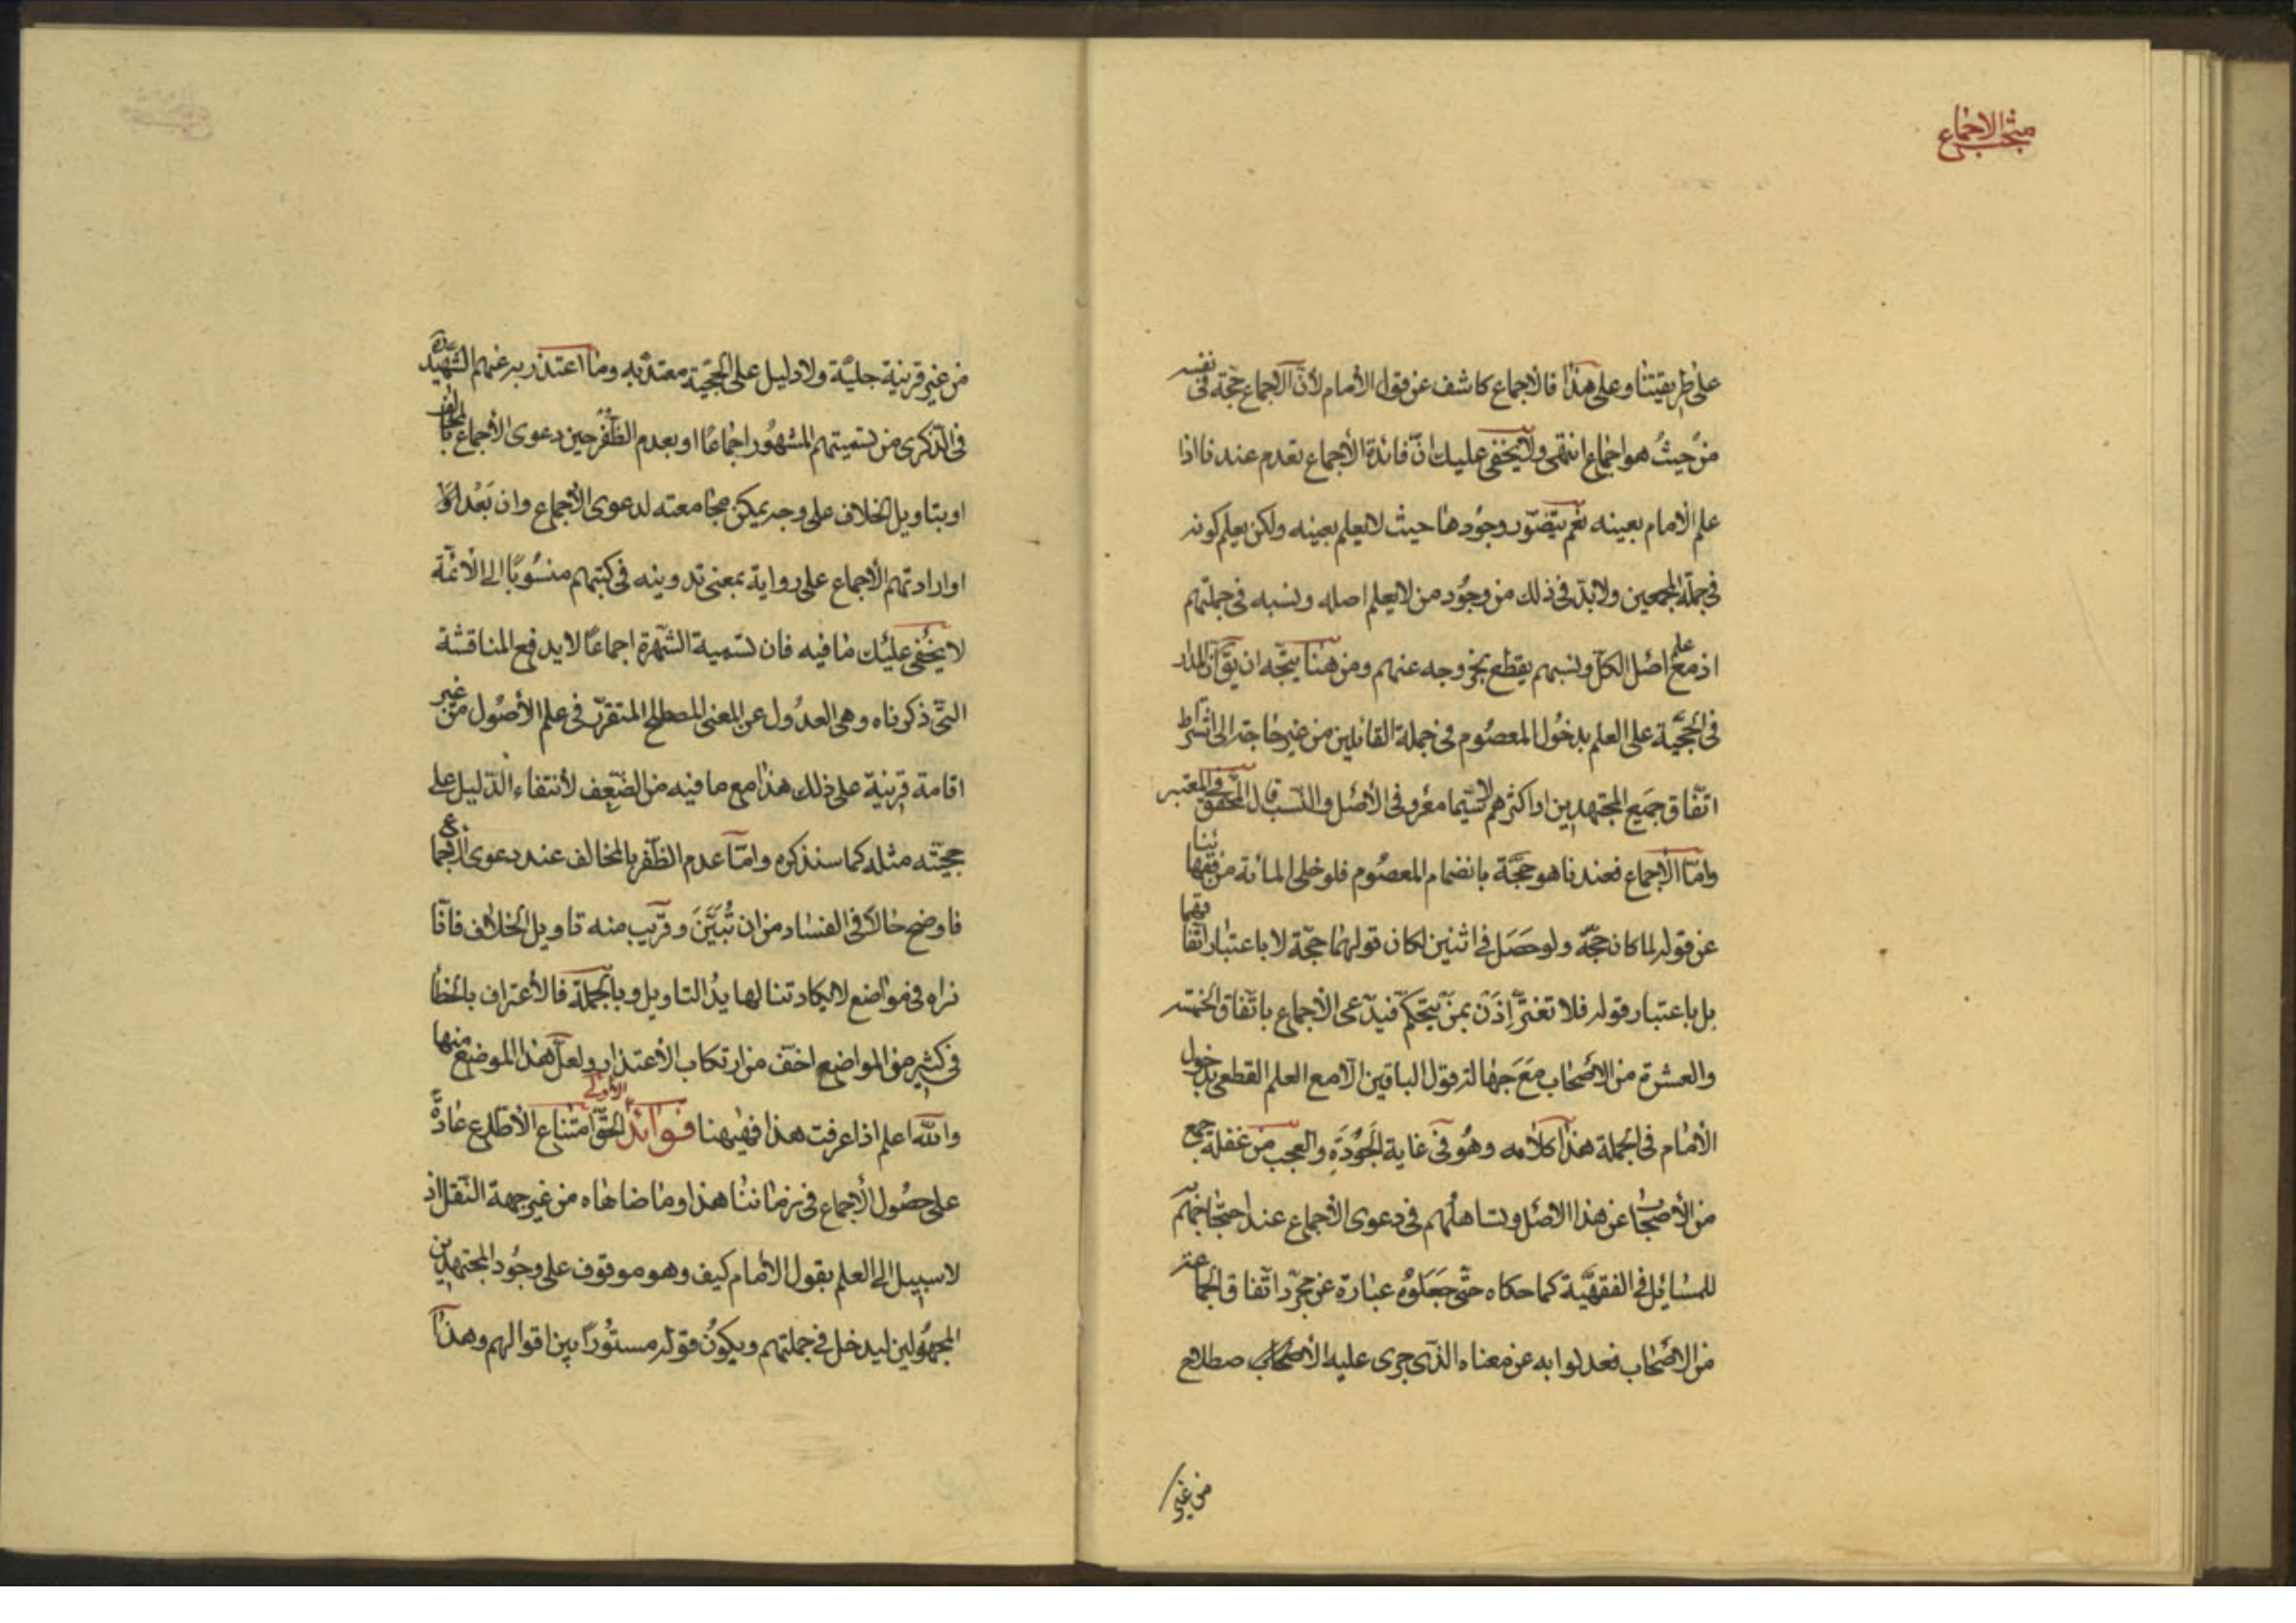 مبحث الاجماع
على طريقتنا وعلى هذا فالاجماع كاشف عن قول الامام لا أنّ الاجماع حجّة فى نفسه
من حيث هو اجماع انتهى ولا يخفى عليك انّ فائدة الأجماع تعدم عندنا اذا
علم الامام بعينه نعم يتصوّر وجودها حيث لا يعلم بعينه ولكن يعلم كونه
فى جملة المجمعين ولا بدّ فى ذلك من وجُود من لا يعلم اصله ونسبه فى جملتهم
اذ مع علم اصل الكلّ ونسبهم يقطع بخروجه عنهم ومن هنا يتّجه ان يقّ انّ المدار
فى الحجّيّة على العلم بدخُول المعصُوم فى جملة القائلين من غير حاجة الى اشتراط
اتّفاق جميع المجتهدين او اكثرهم لا سيّما معرو فى الأصل والنّسب قال المحقق فى المعتبر
وامّا الاجماع فعندنا هو حجّة بانضمام المعصُوم فلو خلى المائة من فقهائنا
عن قوله لما كان حجّة ولو حَصَل فى اثنين لكان قولهما حجّة لا باعتبار اتّفاقهما
بل باعتبار قوله فلا تغترّ إذَنْ بمن يتحكّم فيدّعى الأجماع باتّفاق الخمسه
والعشرة من الاصحاب مَعَ جَهَالة قول الباقين الّا مع العلم القطعى بدخول
الامام فى الجملة هذا كلامه وهُو فى غاية الجَوْدَةِ والعجب من غفلة جمع
من الأصحاب عن هذا الاصل وتساهُلهم فى دعوى الأجماع عند احتجاجهم
للمسائِل الفقهيَّة كما حكاه حتّى جَعَلوُه عبارة عن مجرّد اتّفاق الجماعة
من الاصحاب فعدلوا به عن معناه الّذى جرى عليه الأصطلاح
من غير
من غير قرينة جليّة ولا دليل على الحجّيّة معتدّ به وما اعتذر به عنهم الشّهيد ره
فى الذّكرى من تسميتهم المشهُور اجماعًا او بعدم الظّفر حين دعوى الأجماع بالمخالف
او بتاويل الخلاف على وجه يمكن مجامعته لدعوى الأجماع وان بَعُد او
او ارادتهم الأجماع على رواية بمعنى تدوينه فى كتبهم منسُوبًا الى الأئمّة
لا يخفى عليك ما فيه فان تسمية الشّهرة اجماعًا لا يدفع المناقشة
التّى ذكرناه وهى العدُول عن المعنى المصطلح المتقرّر فى علم الأصُول من غير
اقامة قرينة على ذلك هذا مع ما فيه من الضّعف لأنتفاء الدّليل على
حجيّته مثله كما سنذكره وامّا عدم الظّفر بالمخالف عند دعوى الاجماع
فاوضح حالًا فى الفساد من ان تُبَيَّنَ وقرّيب منه تاويل الخلاف فانّا
نراه فى مواضع لا يكاد تنالها يدُ التاويل وبالجملة فالأعتراف بالخطأ
فى كثير من المواضع اخفّ من ارتكاب الأعتذار ولعلّ هذا الموضع منها
والله اعلم اذا عرفت هذا فهٰيهنا فوائد الأولى الحقّ امتناع الأطّلاع عادةً
على حصُول الأجماع فى زماننا هذا وما ضاهاه من غير جهة النّقل اذ
لا سبيل الى العلم بقول الأمام كيف وهو موقوف على وجُود المجتهدين
المجهُولين ليدخل فى جملتهم ويكوُن قوله مستُورًا بين اقوالهم وهذا